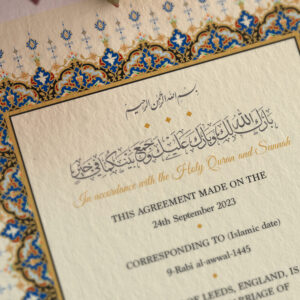 بسم الله الرحمن الرحيم
بارك الله لك وبارك عليك وجمع بينكما في خير
In accordance with the Holy Quran and Sunnah
THIS AGREEMENT MADE ON THE
24th September 2023
CORRESPONDING TO (Islamic date)
9-Rabi al-awwal-1445
OF LEEDS, ENGLAND, IS
RRIAGE OF